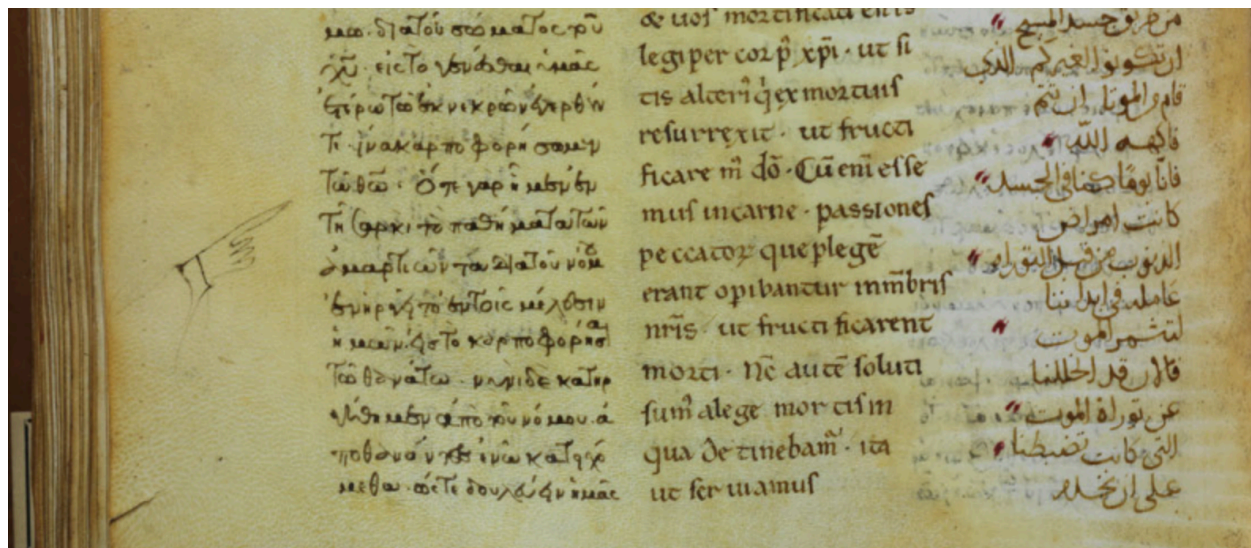 μω· διὰ τοῦ σώματος τοῦ
χῦ· εἰς τὸ γενέσθαι ὑμᾶς
ἑτέρω τῶ ἐκ νεκρῶν ἐγερθέν
τι· ἵνα καρποφορήσωμεν
τῶ θῶ· Ὅτε γὰρ ἦμεν ἐν
τῆ σαρκὶ· τὰ παθήματα τῶν
ἁμαρτιῶν τὰ διὰ τοῦ νόμ
ἐνηργεῖτο ἐν τοῖς μέλεσιν
ἡμῶν· εἰς τὸ καρποφορῆσαι
τῶ θανάτω· νυνὶ δὲ κατηρ
γήθημεν ἀπὸ τοῦ νόμου· ἀ
ποθανόντες ἐν ὧ κατειχό
μεθα· ὥστε δουλεύειν ἡμᾶς
& uos mortificati estis
legi per corp̄ xp̄i · ut si
tis alteri᾽ q̇ ex mortuis
resurrexit · ut fructi
ficare m᾽ dō · Cū eni᾽ esse
mus in carne · passiones
peccatoꝝ que p legē
erant opibantur in mēbris
nr̄is · ut fructi ficarent
morti · Nc̄ autē soluti
sum᾽ a lege mortis in
qua detinebam᾽ · ita
ut seruiamus
من طريق جسد المسيح
ان تكونوا لغيركم الذي
قام من الموتا ان نتم
فاكهه الله
فانا يوقا كنا في الجسد
كانت امراض
الذنوب من قبل التوراه
عامله في ابداننا
لنثمر الموت
فالان قد انحللنا
عن توراة الموت
التي كانت تضبطنا
على ان نخدم